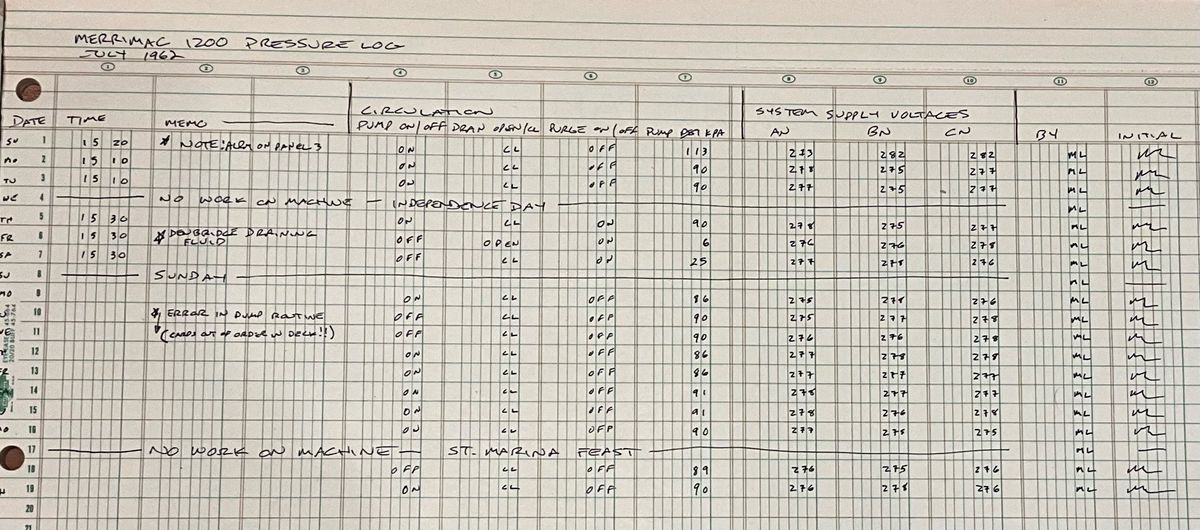 MERRIMAC 1200 PRESSURE LOG
JULY 1962
1 2 3 4 5 6 7 8 9 10 11 12
CIRCULATION SYSTEM SUPPLY VOLTAGES
DATE TIME MEMO PUMP ON/OFF DRAN OPEN/CL PURGE ON/OFF PUMP DST KPA AN BN CN BY INITIAL
SU 1 15 20 * NOTE: ALRM ON PANEL 3 ON CL OFF 113 283 282 282 ML
MO 2 15 10 ON CL OFF 90 278 275 277 ML
TU 3 15 10 ON CL OFF 90 277 275 277 ML
WE 4 NO WORK ON MACHINE - INDEPENDENCE DAY ML
TH 5 15 30 ON CL ON 90 278 275 277 ML
FR 6 15 30 * DEWBRIDGE DRAINING OFF OPEN ON 6 276 276 278 ML
FLUID
SA 7 15 30 OFF CL ON 25 277 278 276 ML
SU 8 SUNDAY ML
MO 9 ON CL OFF 86 275 278 276 ML
10 * ERROR IN DUMP ROUTINE OFF CL OFF 90 275 277 278 ML
11 (CARDS OUT OF ORDER IN DECK!!) OFF CL OFF 90 276 276 278 ML
12 ON CL OFF 86 277 278 278 ML
13 ON CL OFF 86 277 277 277 ML
14 ON CL OFF 91 278 277 277 ML
15 ON CL OFF 91 278 276 278 ML
16 ON CL OFF 90 277 278 275 ML
17 NO WORK ON MACHINE - ST. MARINA FEAST ML
18 OFF CL OFF 89 276 275 276 ML
19 ON CL OFF 90 276 278 276 ML
20
21